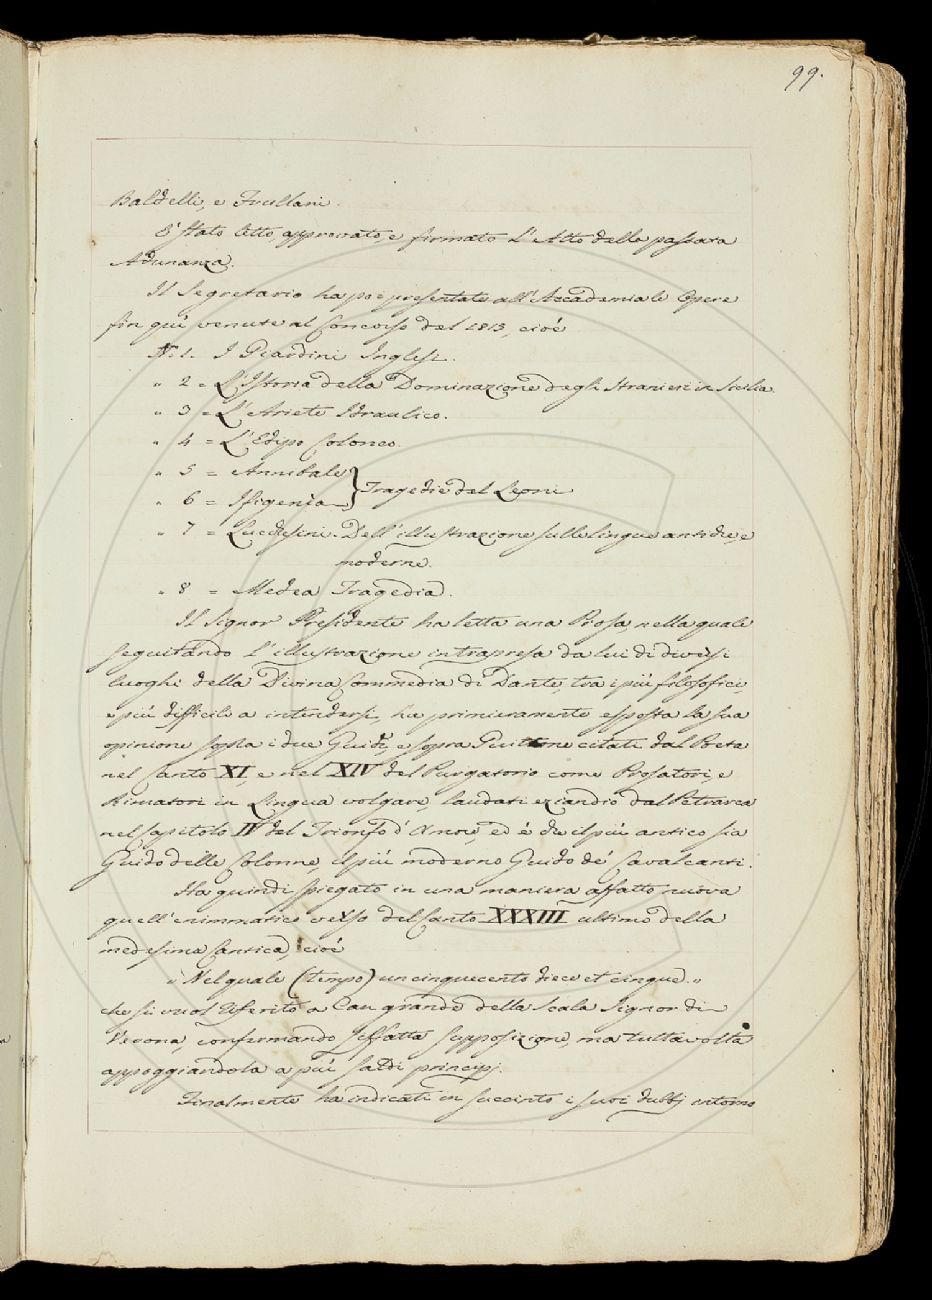 99.
Baldelli, e Frullani.
È stato letto, approvato, e firmato l'Atto della passata
Adunanza.
Il Segretario ha poi presentate all'Accademia le Opere
fin quì venute al Concorso del 1813, cioè
N. 1. I Giardini Inglesi.
" 2 = L'Istoria della Dominazione degli Stranieri in Sicilia.
" 3 = L'Ariete Idraulico.
" 4 = L'Edipo Coloneo.
" 5 = Annibale
" 6 = Ifigenìa } Tragedie del Leoni
" 7 = Lucchesini. Dell'illustrazione sulle lingue antiche, e
moderne.
" 8 = Medea Tragedia.
Il Signor Presidente ha letta una Prosa, nella quale
seguitando l'illustrazione intrapresa da lui di diversi
luoghi della Divina Commedia di Dante, tra i più filosofici,
e più difficili a intendersi, ha primieramente esposta la sua
opinione sopra i due Guidi, e sopra Guittone citati dal Poeta
nel Canto XI, e nel XIV del Purgatorio come Prosatori, e
Rimatori in Lingua volgare, laudati eziandio dal Petrarca
nel Capitolo IV del Trionfo d'Amore, ed è che il più antico sia
Guido delle Colonne, il più moderno Guido de' Cavalcanti.
Ha quindi spiegato in una maniera affatto nuova
quell'enimmatico verso del Canto XXXIII ultimo della
medesima Cantica, cioè
" Nel quale (tempo) un cinquecento diece et cinque "
che si vuol riferito a Can grande della Scala Signor di
Verona, confermando siffatta supposizione, ma tuttavolta
appoggiandola a più saldi principj.
Finalmente ha indicati in succinto i suoi dubbj intorno